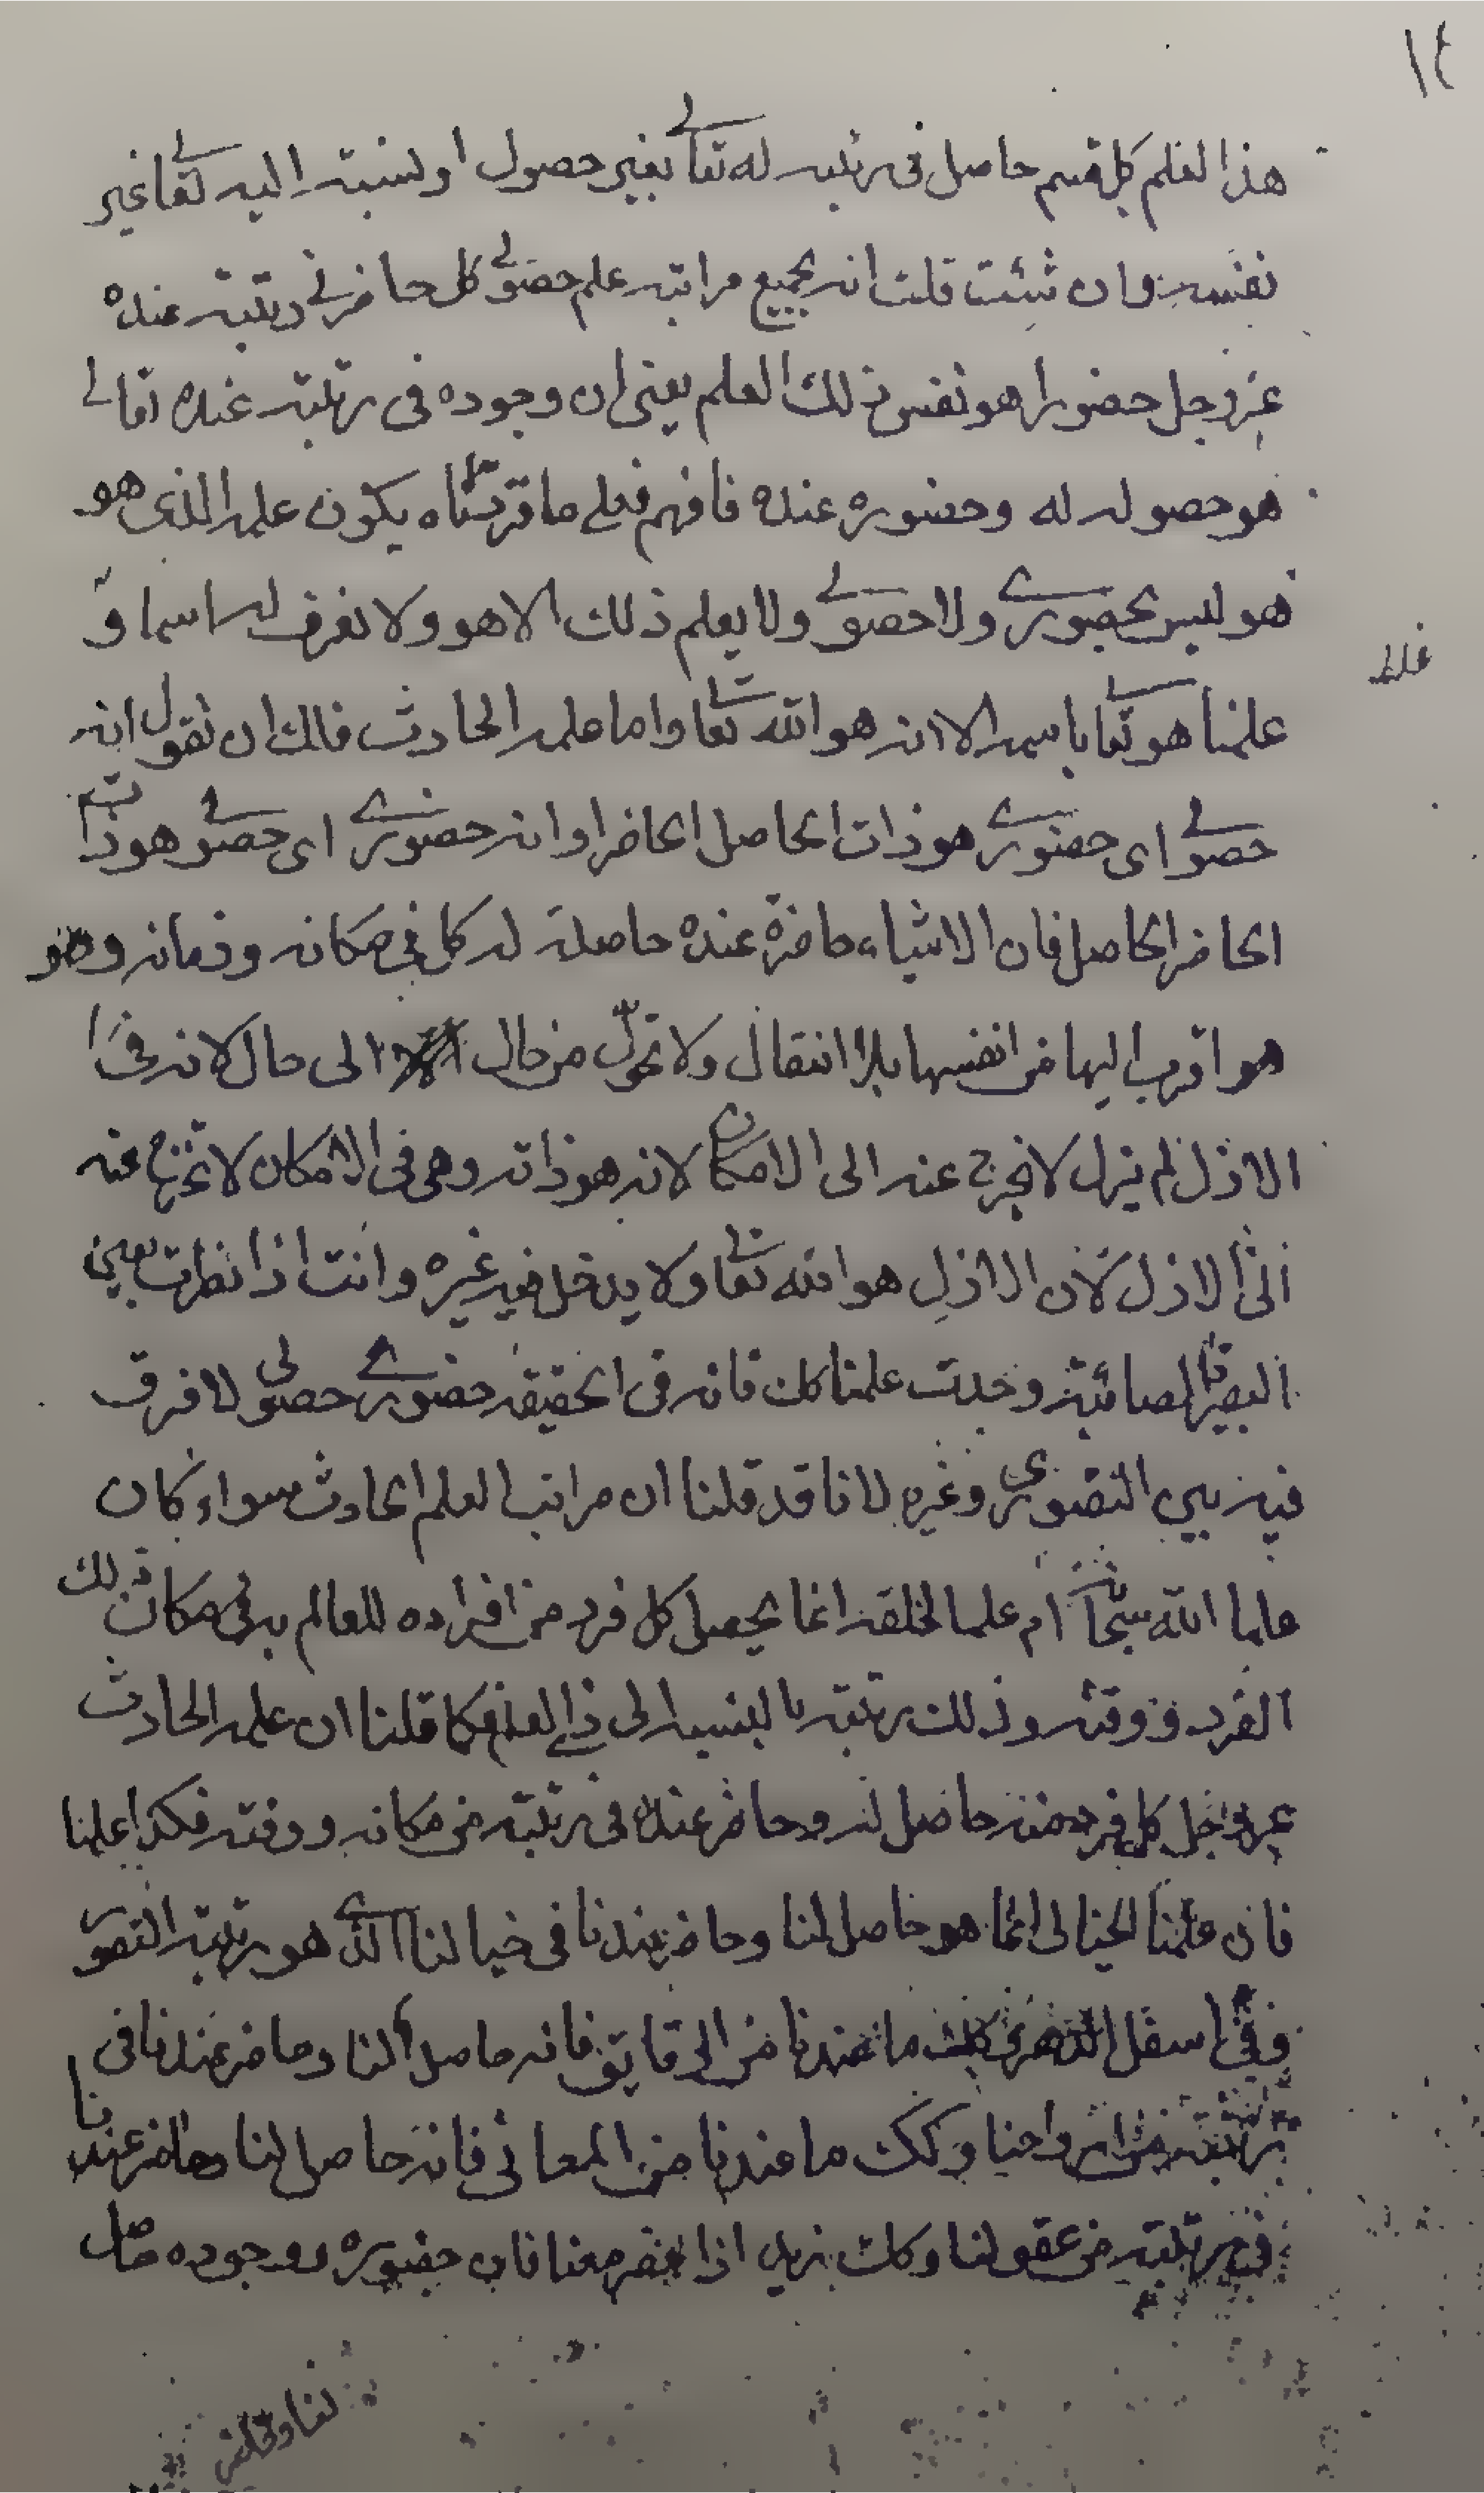 ١٤
هذا العلم كل قسم حاصل في رتبته له تعالى بغير حصول او لنسبته اليه تعالى غير
نفسه وان شئت قلت انه بجميع مراتبه علم حصولي كل حاضر في رتبته عنده
عز وجل حضورا هو نفس ذلك العلم يعني ان وجوده في رتبته عنده تعالى
هو حصوله له وحضوره عنده فافهم فعلى ما قررناه يكون علمه الذي هو
هو ليس بحضوري ولا حصولي ولا يعلم ذلك الا هو ولا نعرف له اسما و
غلط
علمنا هو تعالى باسمه الا انه هو الله تعالى واما علمه الحادث فلك ان تقول انه
حصولي اي حضوري هو ذات الحاصل الحاضر او انه حضوري اي حصولي هو ذات
الحاضر الحاصل فان الاشياء حاضرة عنده حاصلة له كل في مكانه وزمانه وهو
هو اقرب اليها من انفسها بلا انتقال ولا تحول من حال الى حال لانه في
الازل لم يزل لا يخرج عنه الى الامكان لانه هو ذاته وهي في الامكان لا تخرج عنه
الى الازل لان الازل هو الله تعالى ولا يدخل فيه غيره وانت اذا نظرت بعين
البصيرة الصائبة وجدت علمنا كك فانه في الحقيقة حضوري حصولي لا فرق
فيه بين التصوري وغيره لانا قد قلنا ان مراتب العلم الحادث سواء كان
علما الله سبحانه ام علما لخلقه انما يحصل كل فرد من افراده للعالم به في مكان ذلك
الفرد ووقته وذلك رتبته بالنسبة الى ذي العلم فكما قلنا ان علمه الحادث
عز وجل كل فرد منه حاصل له وحاضر عنده في رتبته من مكانه ووقته فكذا علمنا
فان علمنا الخيالي انما هو حاصل لنا وحاضر عندنا في خيالنا الذي هو رتبة التصور
وفي اسفل الدهر وكك ما عندنا من الرقايق فانه حاصل لنا وحاضر عندنا في
رتبته من ارواحنا وكك ما عندنا من المعاني فانه حاصل لنا وحاضر عندنا
في رتبته من عقولنا وكك زيد اذا حضر معنا فان حضوره ووجوده حاصل
لنا